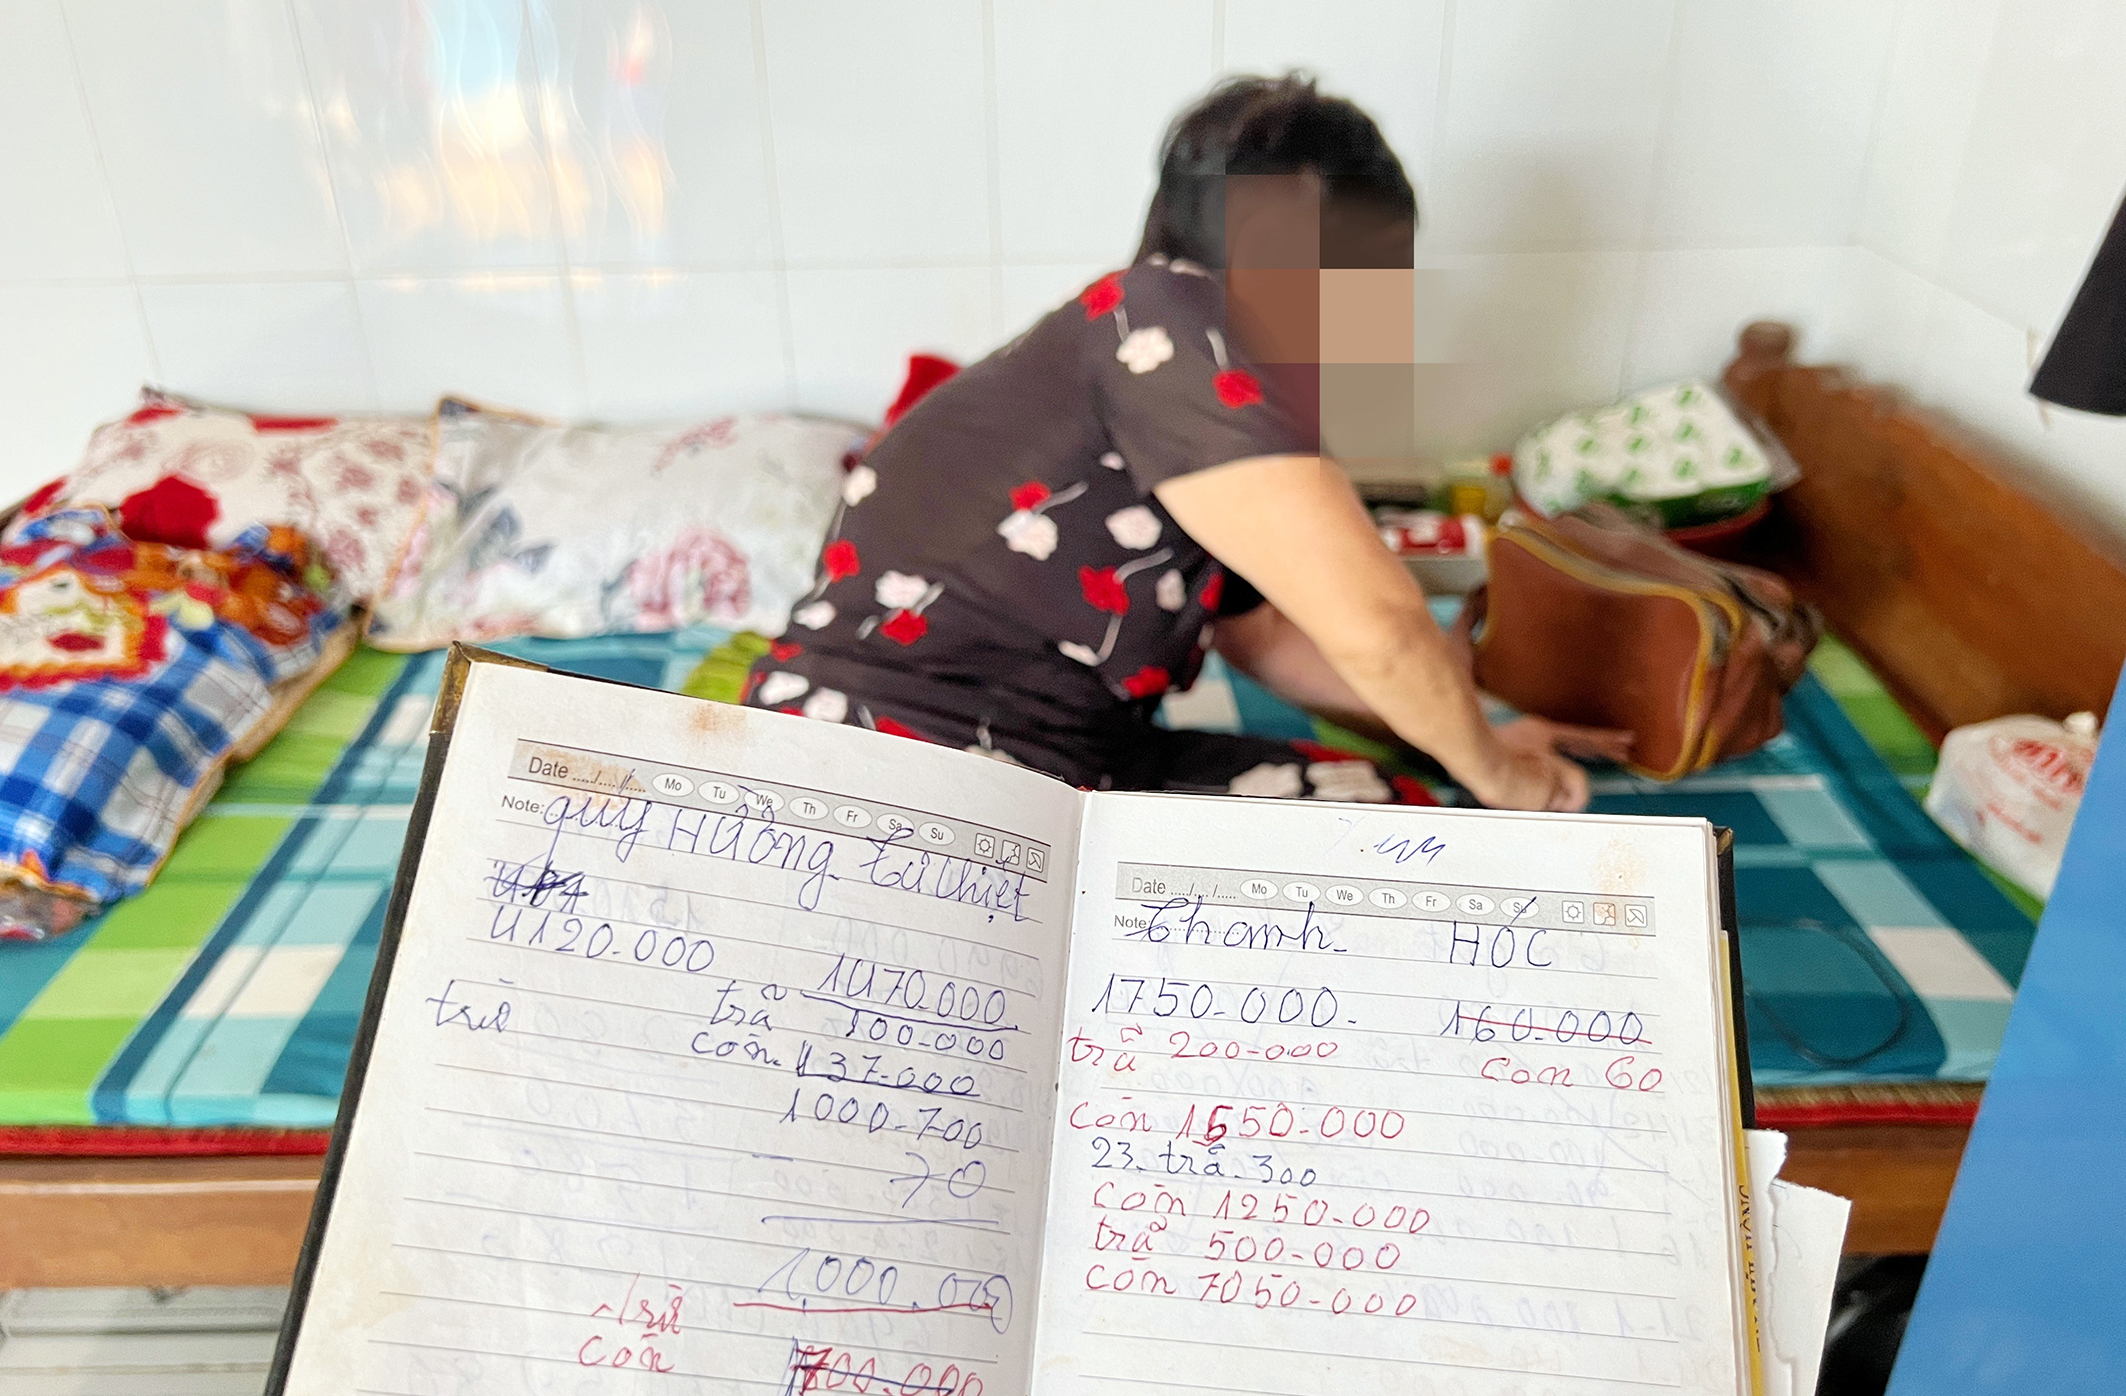 Date ..../..../..... Mo Tu We Th Fr Sa Su
Note: quý Hường. tủ chiệt
4120.000
1470.000
trừ
trã 100.000
còn. 137.000
1000-700
70
1.000.000
trừ
còn 700.000
Date ..../..../..... Mo Tu We Th Fr Sa Su
Note Thanh. HÓC
1750-000. 160.000
trã 200-000 còn 60
còn 1550.000
23. trã. 300
còn 1250.000
trã 500-000
còn 7050-000